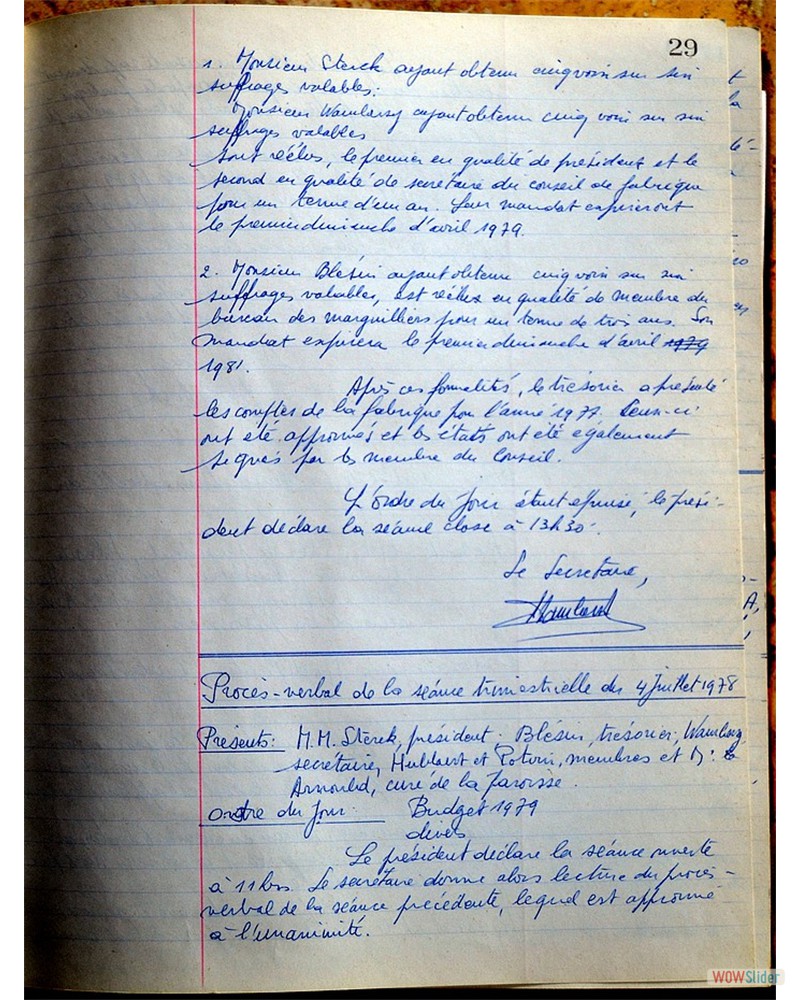 29
1. Monsieur Sterck ayant obtenu cinq voix sur six
suffrages valables;
Monsieur Wamlarsy ayant obtenu cinq voix sur six
suffrages valables
sont réélus, le premier en qualité de président et le
second en qualité de secrétaire du conseil de fabrique
pour un terme d'un an. Leur mandat expireront
le premier dimanche d'avril 1979.
2. Monsieur Blésin ayant obtenu cinq voix sur six
suffrages valables, est réélu en qualité de membre du
bureau des marguilliers pour un terme de trois ans. Son
mandat expirera le premier dimanche d'avril 1979
1981.
Après ces formalités, le trésorier a présenté
les comptes de la fabrique pour l'année 1977. Ceux-ci
ont été approuvés et les états ont été également
signés par les membre du Conseil.
L'ordre du jour étant épuisé, le prési-
dent déclare la séance close à 13h30.
Le Secrétaire,
Procès-verbal de la séance trimestrielle du 4 Juillet 1978
Présents: M.M. Sterck, président; Blésin, trésorier; Wamlarsy,
secrétaire, Hublart et Potvin, membres et Mr
Arnould, curé de la paroisse.
Ordre du jour: Budget 1979
divers
Le président déclare la séance ouverte
à 11 hrs. Le secrétaire donne alors lecture du procès-
verbal de la séance précédente, lequel est approuvé
à l'unanimité.
WOWSlider